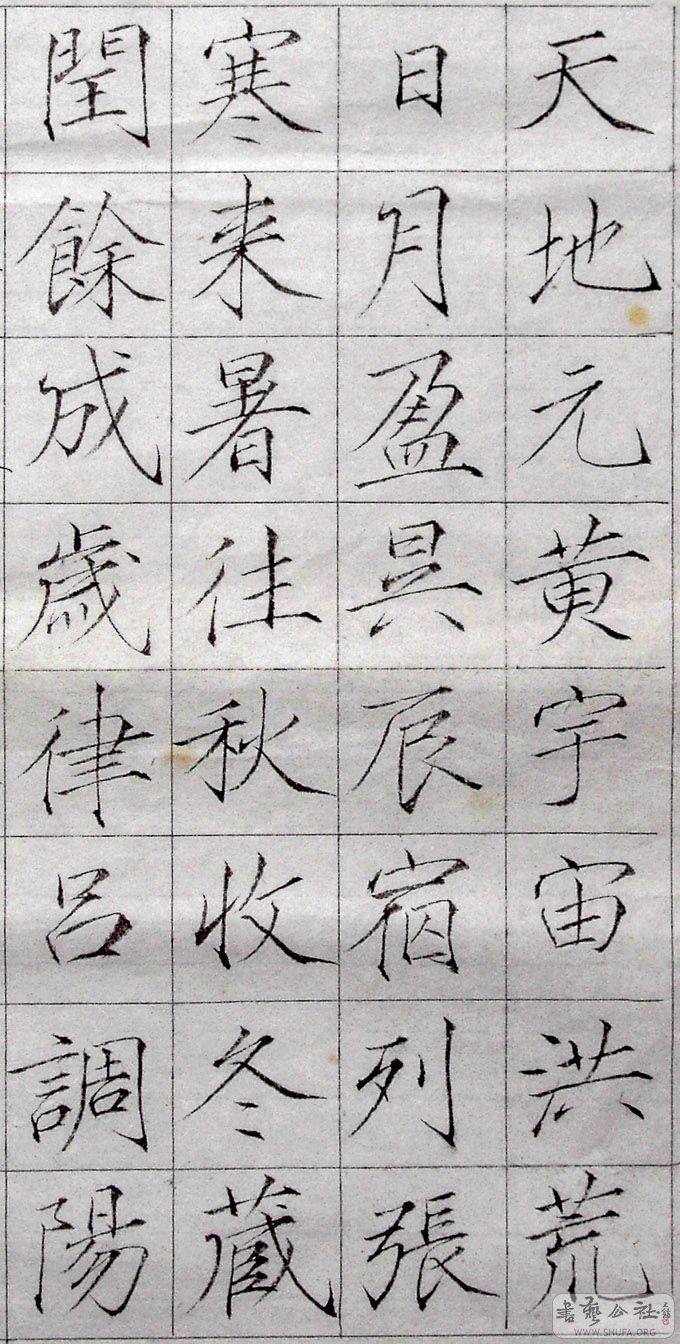 天地元黄宇宙洪荒
日月盈昃辰宿列張
寒来暑往秋收冬蔵
閏餘成歲律呂調陽
書藝公社
WWW.SHUFA.ORG